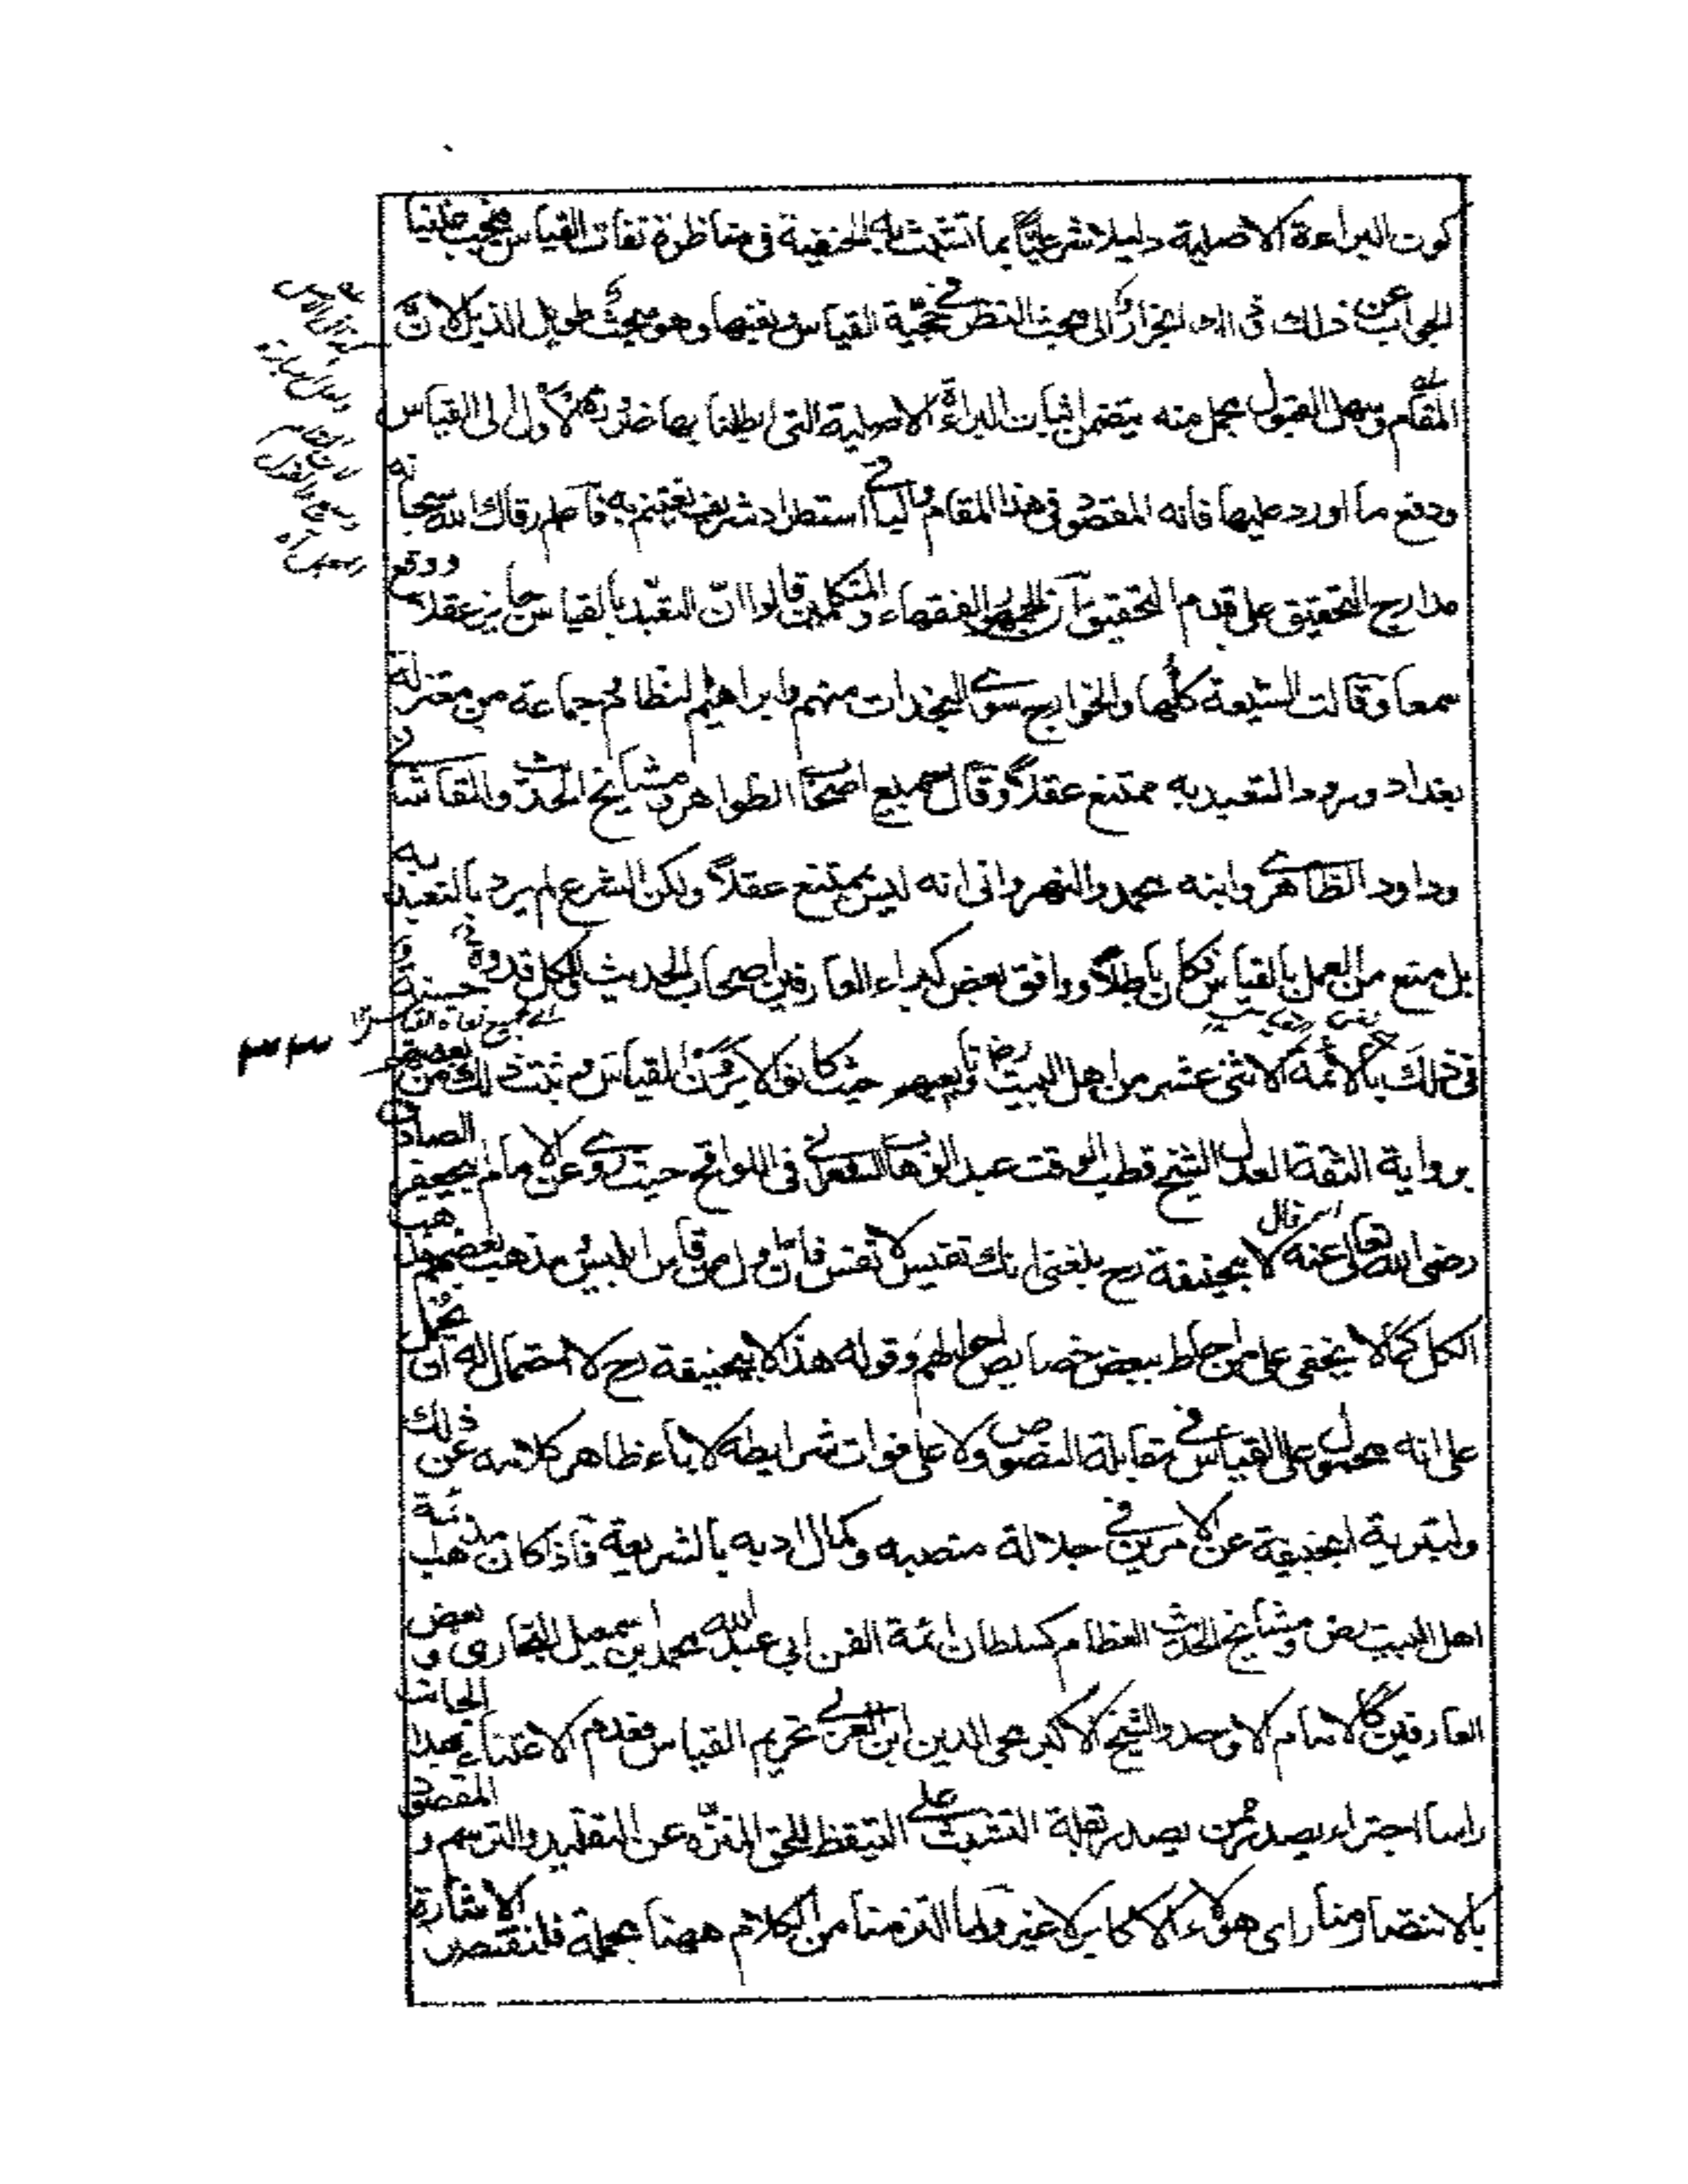 كون البراءة الاصلية دليلا شرعيًا بما تشبث به الحنفية في مناظرة نفات القياس فيجب علينا
الجواب عن ذلك وانجرار الى مبحث النظر في حجّيّة القياس ونفيها وهو مبحثٌ طويل الذيل لانّ
المقام وسهل القبول بجمل منه يتضمن اثبات البراءة الاصلية التى ابطلنا بها الاول الى القياس
ودفع ما اورد عليها فانه المقصود في هذا المقام استطراد شريف نغتنم به فاعلم رقاك الله سبحانه
مدارج التحقيق على قدم التحقيق ان الجمهور الفقهاء والمتكلمين قالوا انّ التعبّد بالقياس جايز عقلا ووقع
سمعا وقالت الشيعة كلّها والخوارج سوى النجدات منهم وابراهيم النظام وجماعة من معتزلة
بغداد ورود التعبد به ممتنع عقلاً وقال جميع اصحاب الظواهر ومشايخ الحديث والقاشاني
وداود الظاهري وابنه محمد والنهرواني انه ليس بممتنع عقلاً ولكن الشرع لم يرد بالتعبد به
بل منع من العمل بالقياس فكان باطلاً ووافق بعض كبراء العارفين اصحاب الحديث ولكل قدوة حسنة
في ذلك بالائمة الاثنى عشر من اهل البيت رض وتابعيهم حيث كانوا لا يرون القياس وثبت ذلك من بعضهم
برواية الثقة العدل الشيخ قطب الوقت عبد الوهاب الشعراني في اللواقح حيث روى عن الامام جعفر الصادق
رضى الله تعالى عنه انه قال لابيحنيفة رح بلغنى انك تقيس لا تقس فان اول من قاس ابليس ومذهب بعضهم مذهب
الكل كما لا يخفى على من احاط ببعض خصايص احوالهم وقوله هذا لابيحنيفة رح لا احتمال له ان يحمل
على انه محمول على القياس في مقابلة النصوص ولا على فوات شرايطه لاباء ظاهر كلامه عن ذلك
ولتبرية ابيحنيفة عن الامرين في جلالة منصبه وكمال ادبه بالشريعة فاذا كان مذهب
اهل البيت رض ومشايخ الحديث العظام كسلطان ائمة الفن ابي عبد الله محمد ابن اسمعيل البخاري وبعض
العارفين كالامام الاوحد والشيخ الاكبر محى الدين ابن العربي تحريم القياس فعدم الاعتناء بهذا الجانب
راسا اجتراء يصدر ممن يصدر لقلة التشبث على التيقظ للحق المنزّه عن التقليد والترسم والمقصود
بالانتصار منا راى هولاء الاكابر لا غير ولما التزمنا من الكلام ههنا بجملة فلنقتصر الاشارة